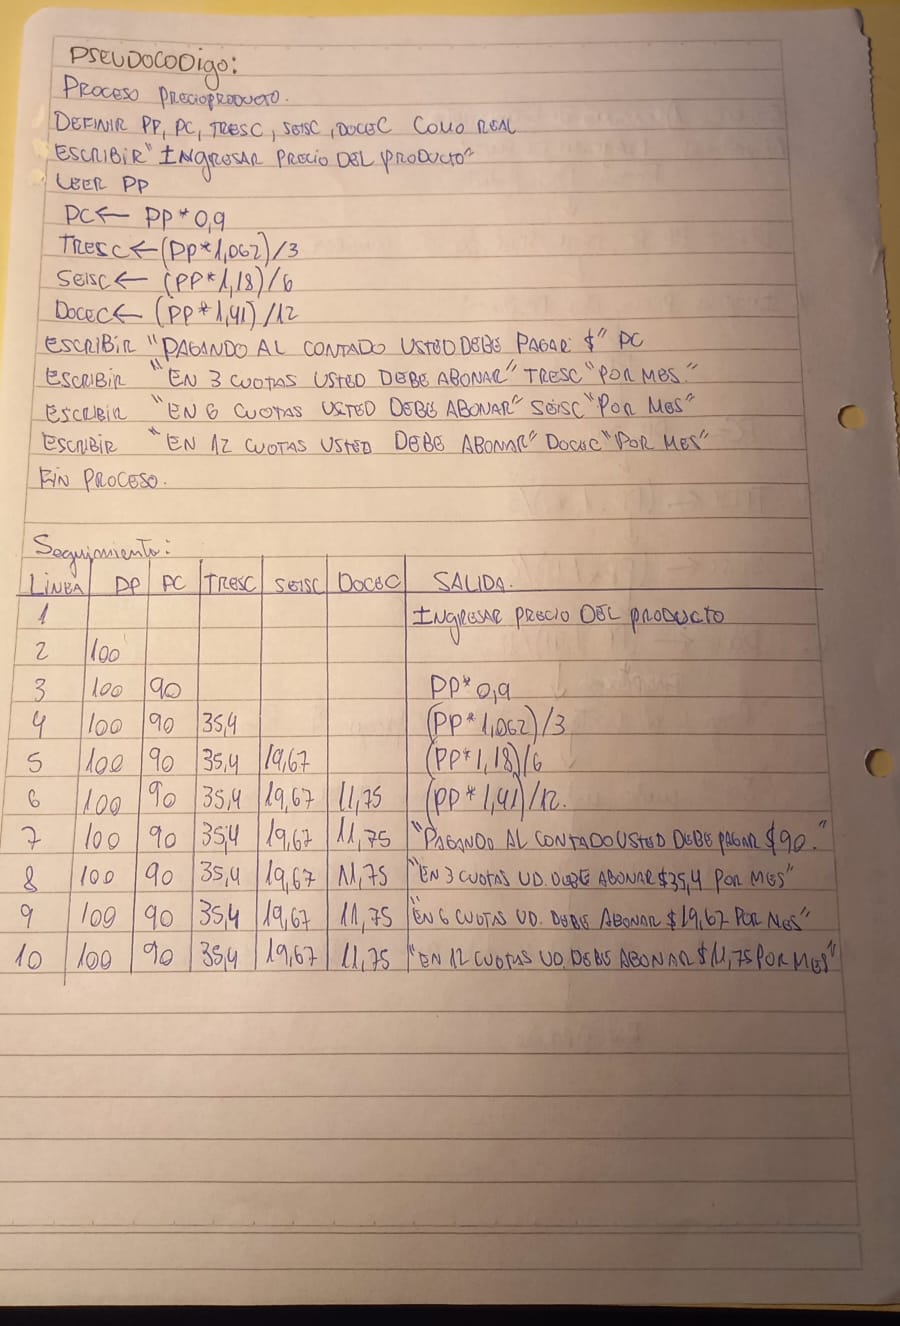 PSEUDOCODigo:
PROCESO PRECIOPRODUCTO.
DEFINIR PP, PC, TRESC, SEISC, DOCEC COMO REAL
ESCRIBIR "INGRESAR PRECIO DEL PRODUCTO"
LEER PP
PC← PP*0,9
TRESC←(PP*1,062)/3
SEISC← (PP*1,18)/6
DOCEC← (PP*1,41)/12
ESCRIBIR "PAGANDO AL CONTADO USTED DEBE PAGAR $" PC
ESCRIBIR "EN 3 CUOTAS USTED DEBE ABONAR" TRESC "POR MES."
ESCRIBIR "EN 6 CUOTAS USTED DEBE ABONAR" SEISC "POR MES"
ESCRIBIR "EN 12 CUOTAS USTED DEBE ABONAR" DOCEC "POR MES"
FIN PROCESO.
Seguimiento:
LÍNEA PP PC TRESC SEISC DOCEC SALIDA.
1 INGRESAR PRECIO DEL PRODUCTO
2 100
3 100 90 PP*0,9
4 100 90 35,4 (PP*1,062)/3
5 100 90 35,4 19,67 (PP*1,18)/6
6 100 90 35,4 19,67 11,75 (PP*1,41)/12.
7 100 90 35,4 19,67 11,75 "PAGANDO AL CONTADO USTED DEBE PAGAR $90."
8 100 90 35,4 19,67 11,75 "EN 3 CUOTAS UD. DEBE ABONAR $35,4 POR MES"
9 100 90 35,4 19,67 11,75 "EN 6 CUOTAS UD. DEBE ABONAR $19,67 POR MES"
10 100 90 35,4 19,67 11,75 "EN 12 CUOTAS UD. DEBE ABONAR $11,75 POR MES"